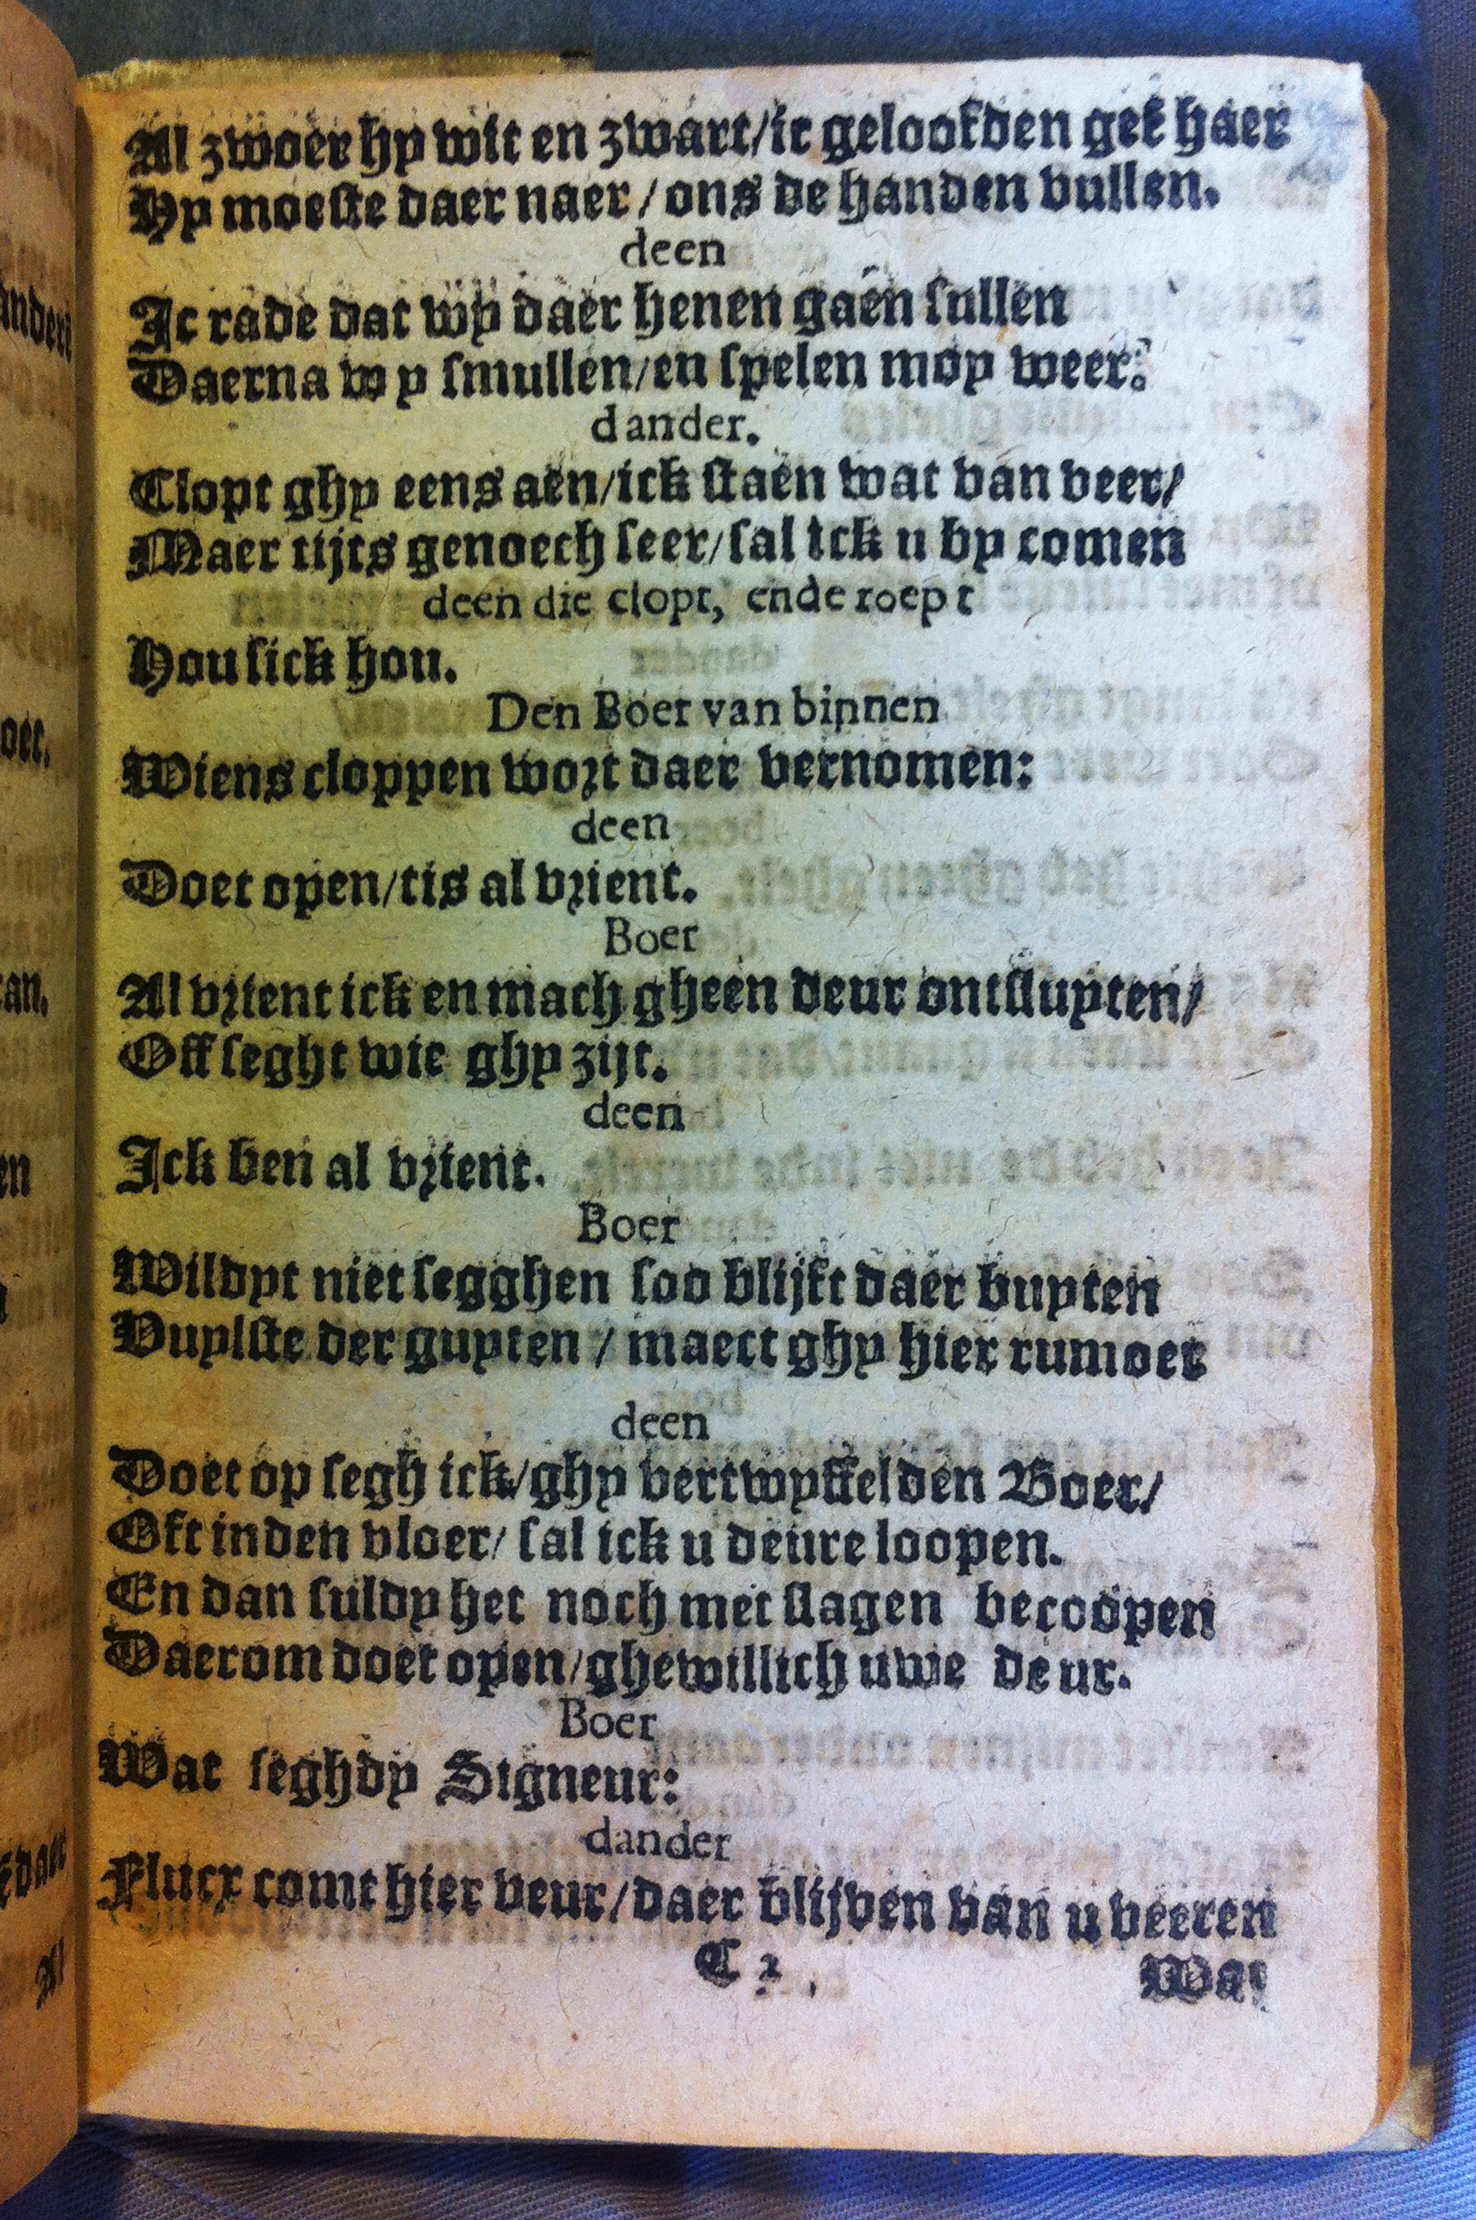 Al zwoer hy wit en zwart/ic geloofden gek haer
Hy moeste daer naer/ons de handen vullen.
deen
Jc rade dat wy daer henen gaen sullen
Daerna wy smullen/en spelen moy weer.
dander.
Clopt ghy eens aen/ick staen wat van veer/
Maer tijts genoech seer/sal ick u by comen
deen die clopt, ende roept
Hou sick hou.
Den Boer van binnen
Wiens cloppen wort daer vernomen:
deen
Doet open/tis al vrient.
Boer
Al vrient ick en mach gheen deur ontsluyten/
Off seght wie ghy zijt.
deen
Ick ben al vrient.
Boer
Wildyt niet segghen soo blijft daer buyten
Vuylste der guyten / maect ghy hier rumoer
deen
Doet op segh ick/ghy vertwyffelden Boer/
Oft inden vloer/ sal ick u deure loopen.
En dan suldy het noch met slagen becoopen
Daerom doet open/ghewillich uwe deur.
Boer
Wat seghdy Signeur:
dander
Flucx comt hier veur/daer blijven van u veeren
C 2
Wat
anders
oer.
an.
en
daer
Al